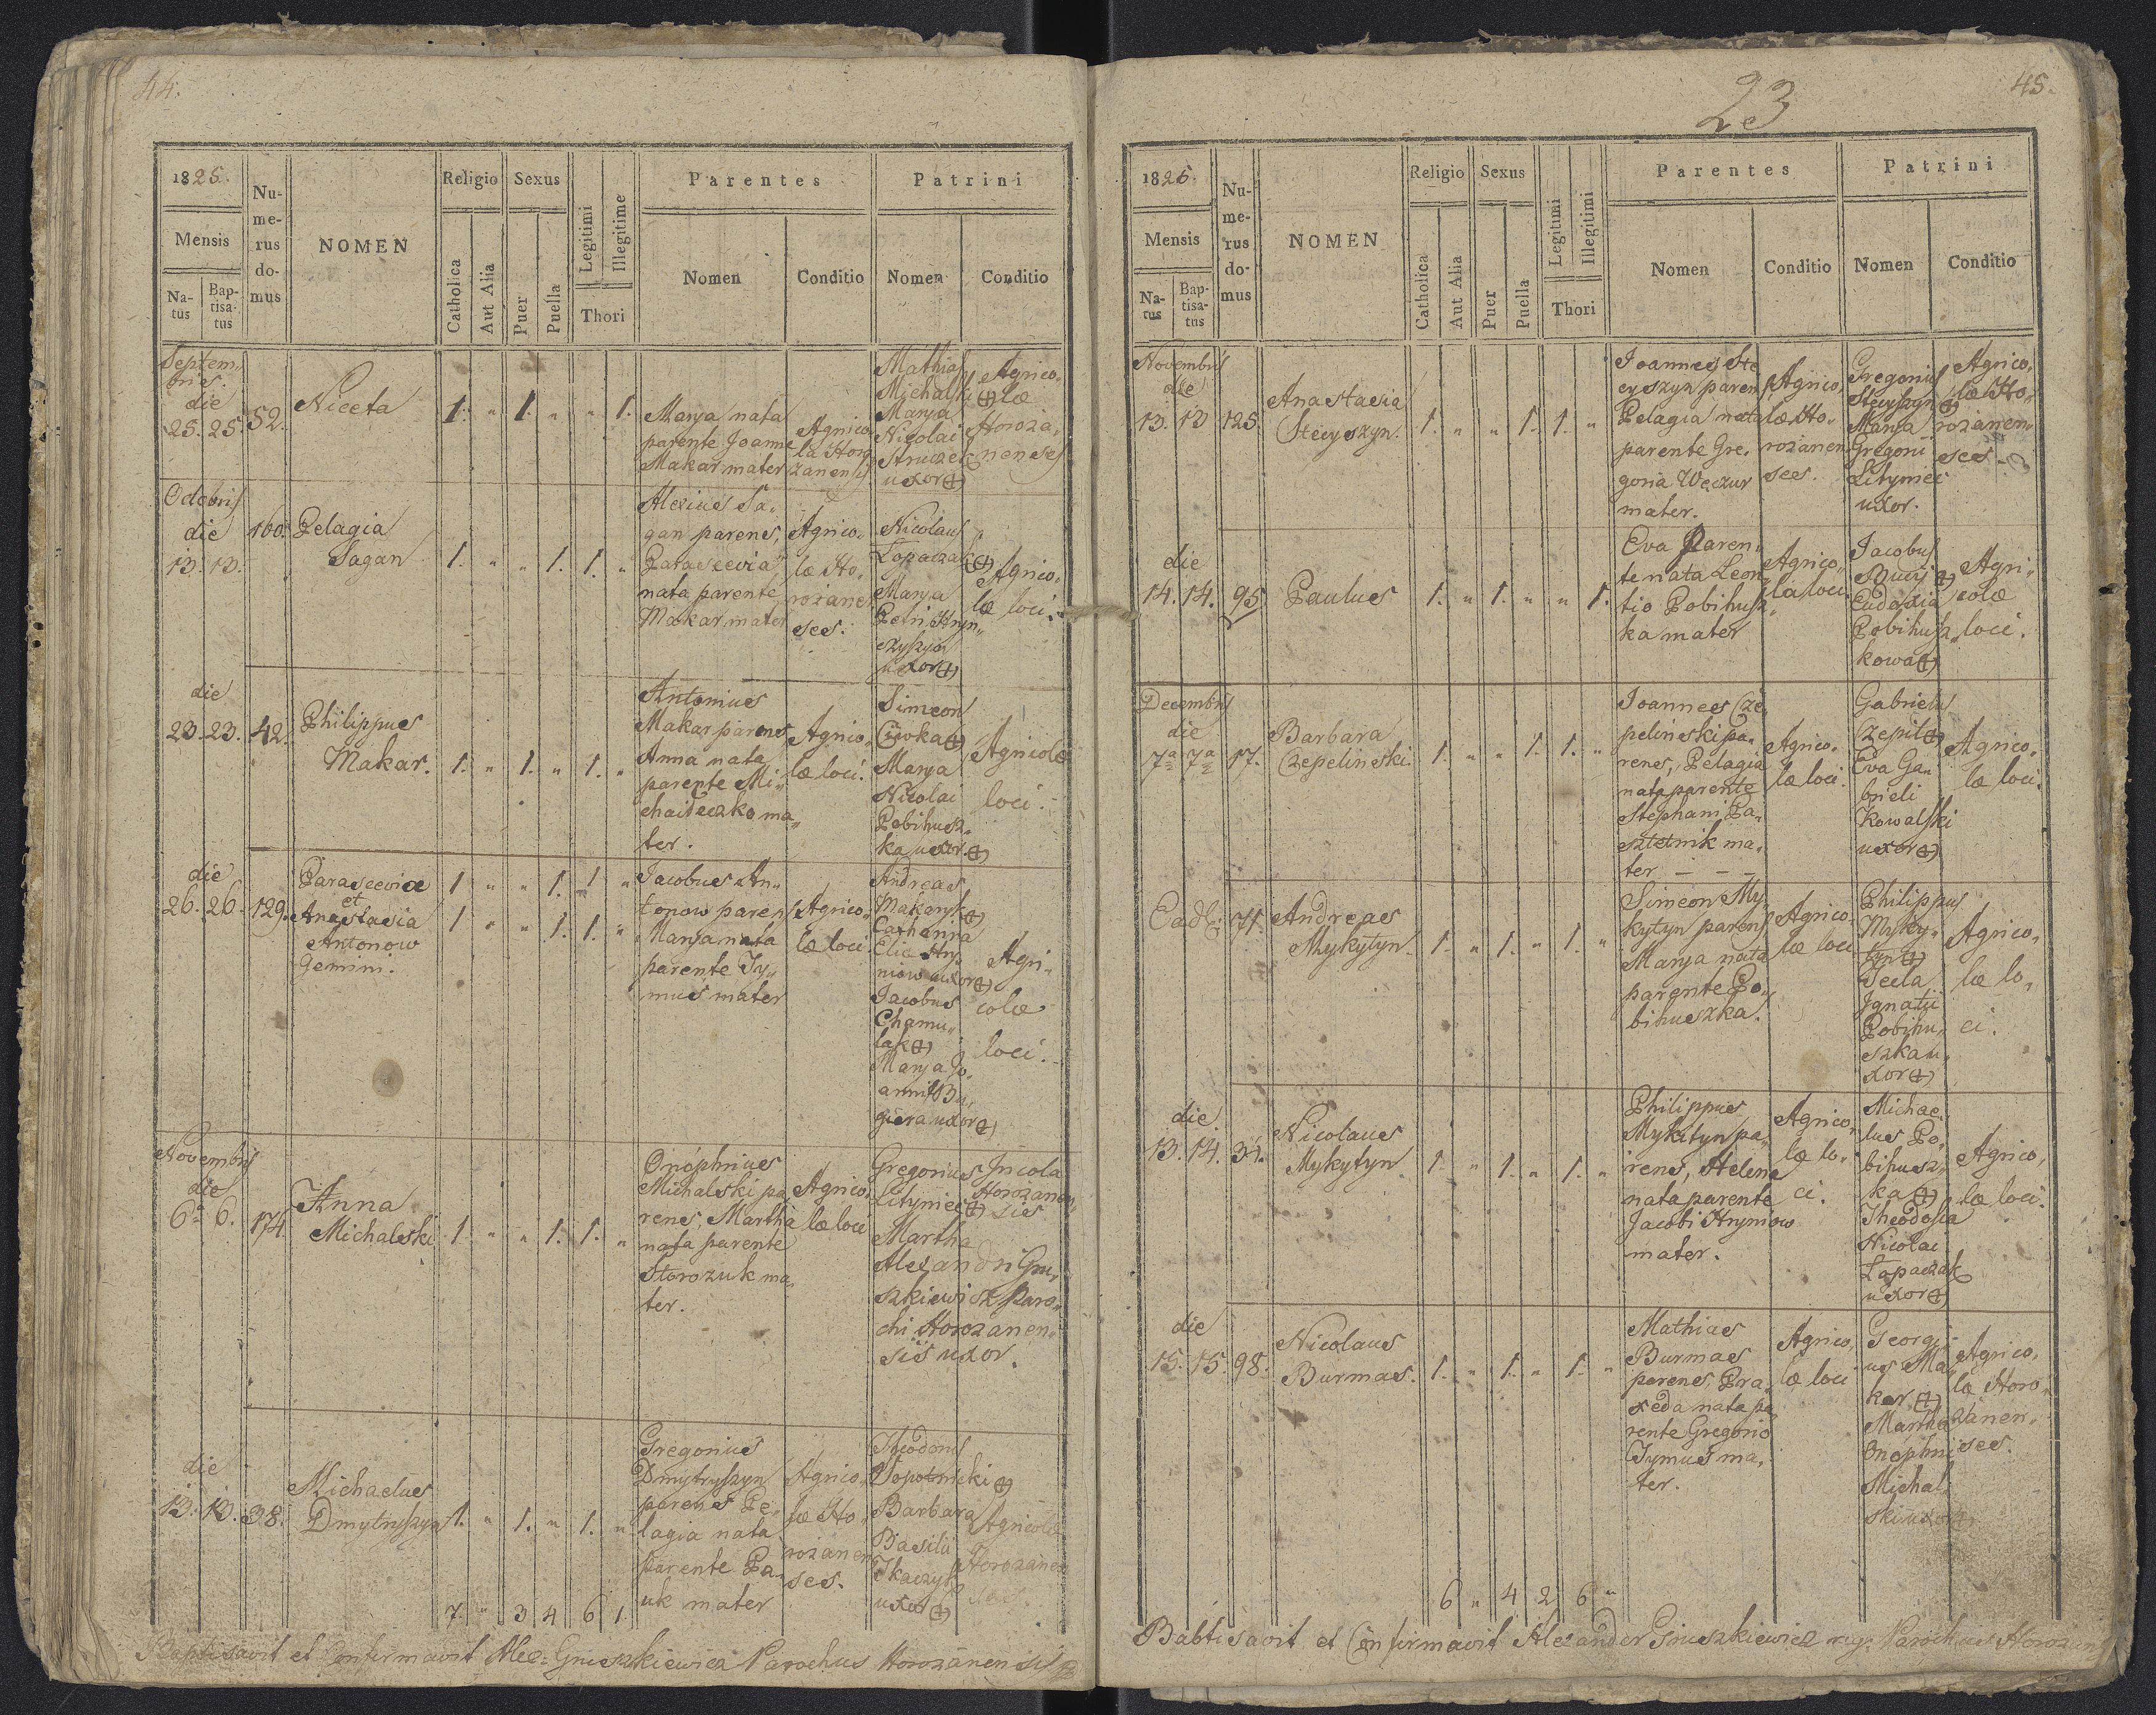 44.
1825.
Mensis
Na-
tus
Bap-
tisa-
tus
Nu-
me-
rus
do-
mus
NOMEN
Religio
Catholica
Aut Alia
Sexus
Puer
Puella
Legitimi
Illegitime
Thori
Parentes
Nomen
Conditio
Patrini
Nomen
Conditio
Septem„
bris.
die
25. 25.
52.
Niceta
1. „ 1. „ „ 1.
Marya nata
parente Joanne
Makar mater
Agrico„
la Horo
zanensis
Mathias
Michalski (+)
Marya
Nicolai
uxor (+)
Agrico„
læ
Horoża„
nenses
Octobris
die
13. 13.
160.
Pelagia
Sagan
1. „ „ 1. 1. „
Alexius Sa„
gan parens,
Parascevia
nata parente
Makar mater
Agrico„
læ Ho„
rożanen
ses.
Nicolaus
Łopaczak (+)
Marya
Petri Hryn„
czyszyn
uxor (+)
Agrico„
læ loci.
die
23. 23.
42.
Philippus
Makar.
1. „ 1. „ 1. „
Antonius
Makar parens,
Anna nata
parente Mi„
chai Teczko ma„
ter.
Agrico„
læ loci.
Simeon
(+)
Marya
Nicolai
Pobihusz„
ka uxor. (+)
Agricolæ
loci.
die
26. 26.
129.
Parascevia
et
Anastasia
Antonow
Gemini.
1 „ „ 1. 1 „
1 „ „ 1. 1. „
Jacobus An„
tonow parens
Marya nata
parente Ty„
mus mater
Agrico„
læ loci
Andreas
Makaryk (+)
Catharina
Eliæ Hry„
niow uxor (+)
Jacobus
Chamu„
lak (+)
Marya Jo„
annis Bu„
giera uxor (+)
Agri„
colæ
loci.
Novembris
die
6ª 6.
174.
Anna
Michalski
1. „ „ 1. 1. „
Onophrius
Michalski pa„
rens, Martha
nata parente
Storozuk ma„
ter.
Agrico„
læ loci
Gregorius
Litynies (+)
Incola
Horożanen„
sies
Martha
Alexandri Gru„
szkiewicz Paro„
chi Horozanen„
sis uxor.
die
13. 13.
38.
Michaelus
Dmytryszyn
1. „ 1. „ 1. „
Gregorius
Dmytryszyn
parens Pe„
lagia nata
parente Pa„
uk mater
Agrico„
læ Ho„
rozanen
ses.
Theodorus
(+)
Barbara
Basilii
Tkaczyk
uxor (+)
Agricolæ
Horozanen
7. „ 3 4 6 1.
Baptisavit et Confirmavit Alex: Gruszkiewicz Parochus Horozanensis
23
45.
1825.
Mensis
Na-
tus
Bap-
tisa-
tus
Nu-
me-
rus
do-
mus
NOMEN
Religio
Catholica
Aut Alia
Sexus
Puer
Puella
Legitimi
Illegitimi
Thori
Parentes
Nomen
Conditio
Patrini
Nomen
Conditio
Novembris
die
13. 13
125.
Anastasia
Stecyszyn.
1. „ „ 1. 1. „
Joannes Ste
cyszyn parens
Pelagia nata
parente Gre„
goria Węczur
mater.
Agrico„
læ Ho„
rożanen
ses.
Gregorius
Stecyszyn (+)
Marya
Gregorii
Litynies
uxor.
Agrico„
læ Ho„
rożanen„
ses
die
14. 14.
95.
Paulus
1. „ 1. „ „ 1.
Eva Paren„
te nata Leon„
tio Pobihusz„
ka mater
Agrico„
la loci
Jacobus
Burij (+)
Eudoxia
Pobihusz„
kowa (+)
Agri„
colæ
loci.
Decembris
die
7ª 7ª
17.
Barbara
Czepelinski.
1. „ „ 1. 1. „
Joannes Cze„
pelinski pa„
rens, Pelagia
nata parente
Stephani Pa„
sztetnik ma„
ter — — —
Agrico„
læ loci.
Gabrielus
Czepil (+)
Eva Ga„
brieli
Kowalski
uxor (+)
Agrico„
læ loci.
Ead:
71.
Andreas
Mykytyn.
1. „ 1. „ 1. „
Simeon My„
kytyn parens
Marya nata
parente Po„
bihuszka.
Agrico„
læ loci
Philippus
Myky„
tyn (+)
Tecla
Ignatii
Pobihu„
szka u„
xor (+)
Agrico„
læ lo„
ci.
die
13. 14.
31.
Nicolaus
Mykytyn
1. „ 1. „ 1. „
Philippus
Mykytyn pa„
rens, Helena
nata parente
Jacobi Hryniow
mater.
Agrico„
læ lo„
ci.
Michae„
lus Po„
bihusz„
ka (+)
Theodosia
Nicolai
Łopaczak
uxor (+)
Agrico„
læ loci.
die
15. 15.
98.
Nicolaus
Burmas.
1. „ 1. „ 1. „
Mathias
Burmas
parens, Pra„
xeda nata pa„
rente Gregorio
Tymus ma„
ter.
Agrico„
læ loci
Georgi„
us Ma„
kar (+)
Martha
Onophri
Michal„
ski uxor (+)
Agrico„
læ Horo„
zanen„
ses.
6 „ 4 2 6 „
Babtisavit et Confirmavit Alexander Gruszkiewicz Parochus Horozanen